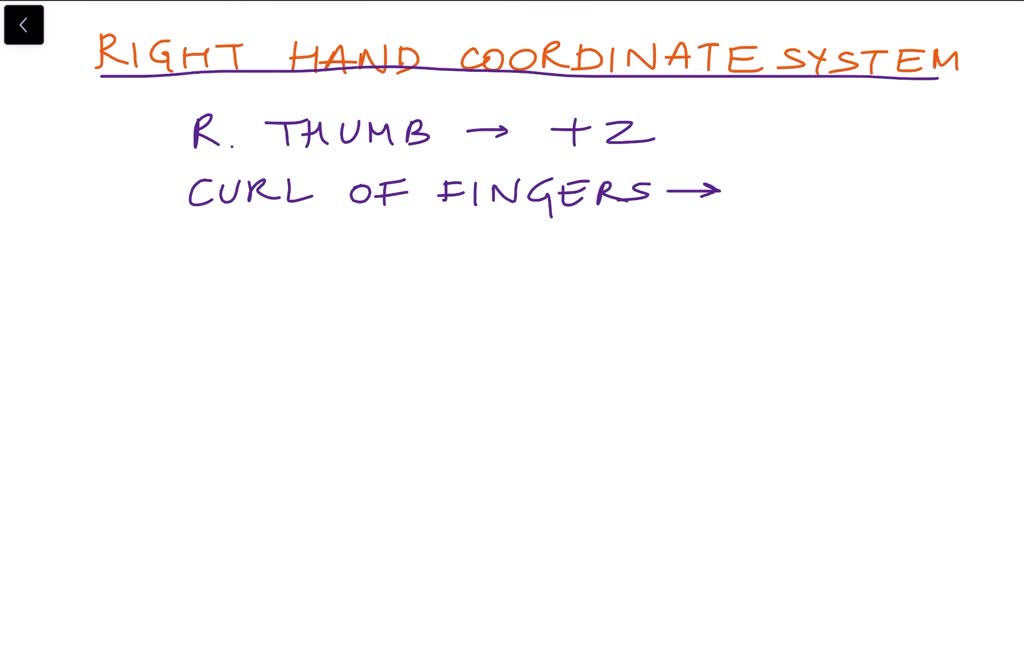 RIGHT HAND COORDINATE SYSTEM
R. THUMB → +Z
CURL OF FINGERS →